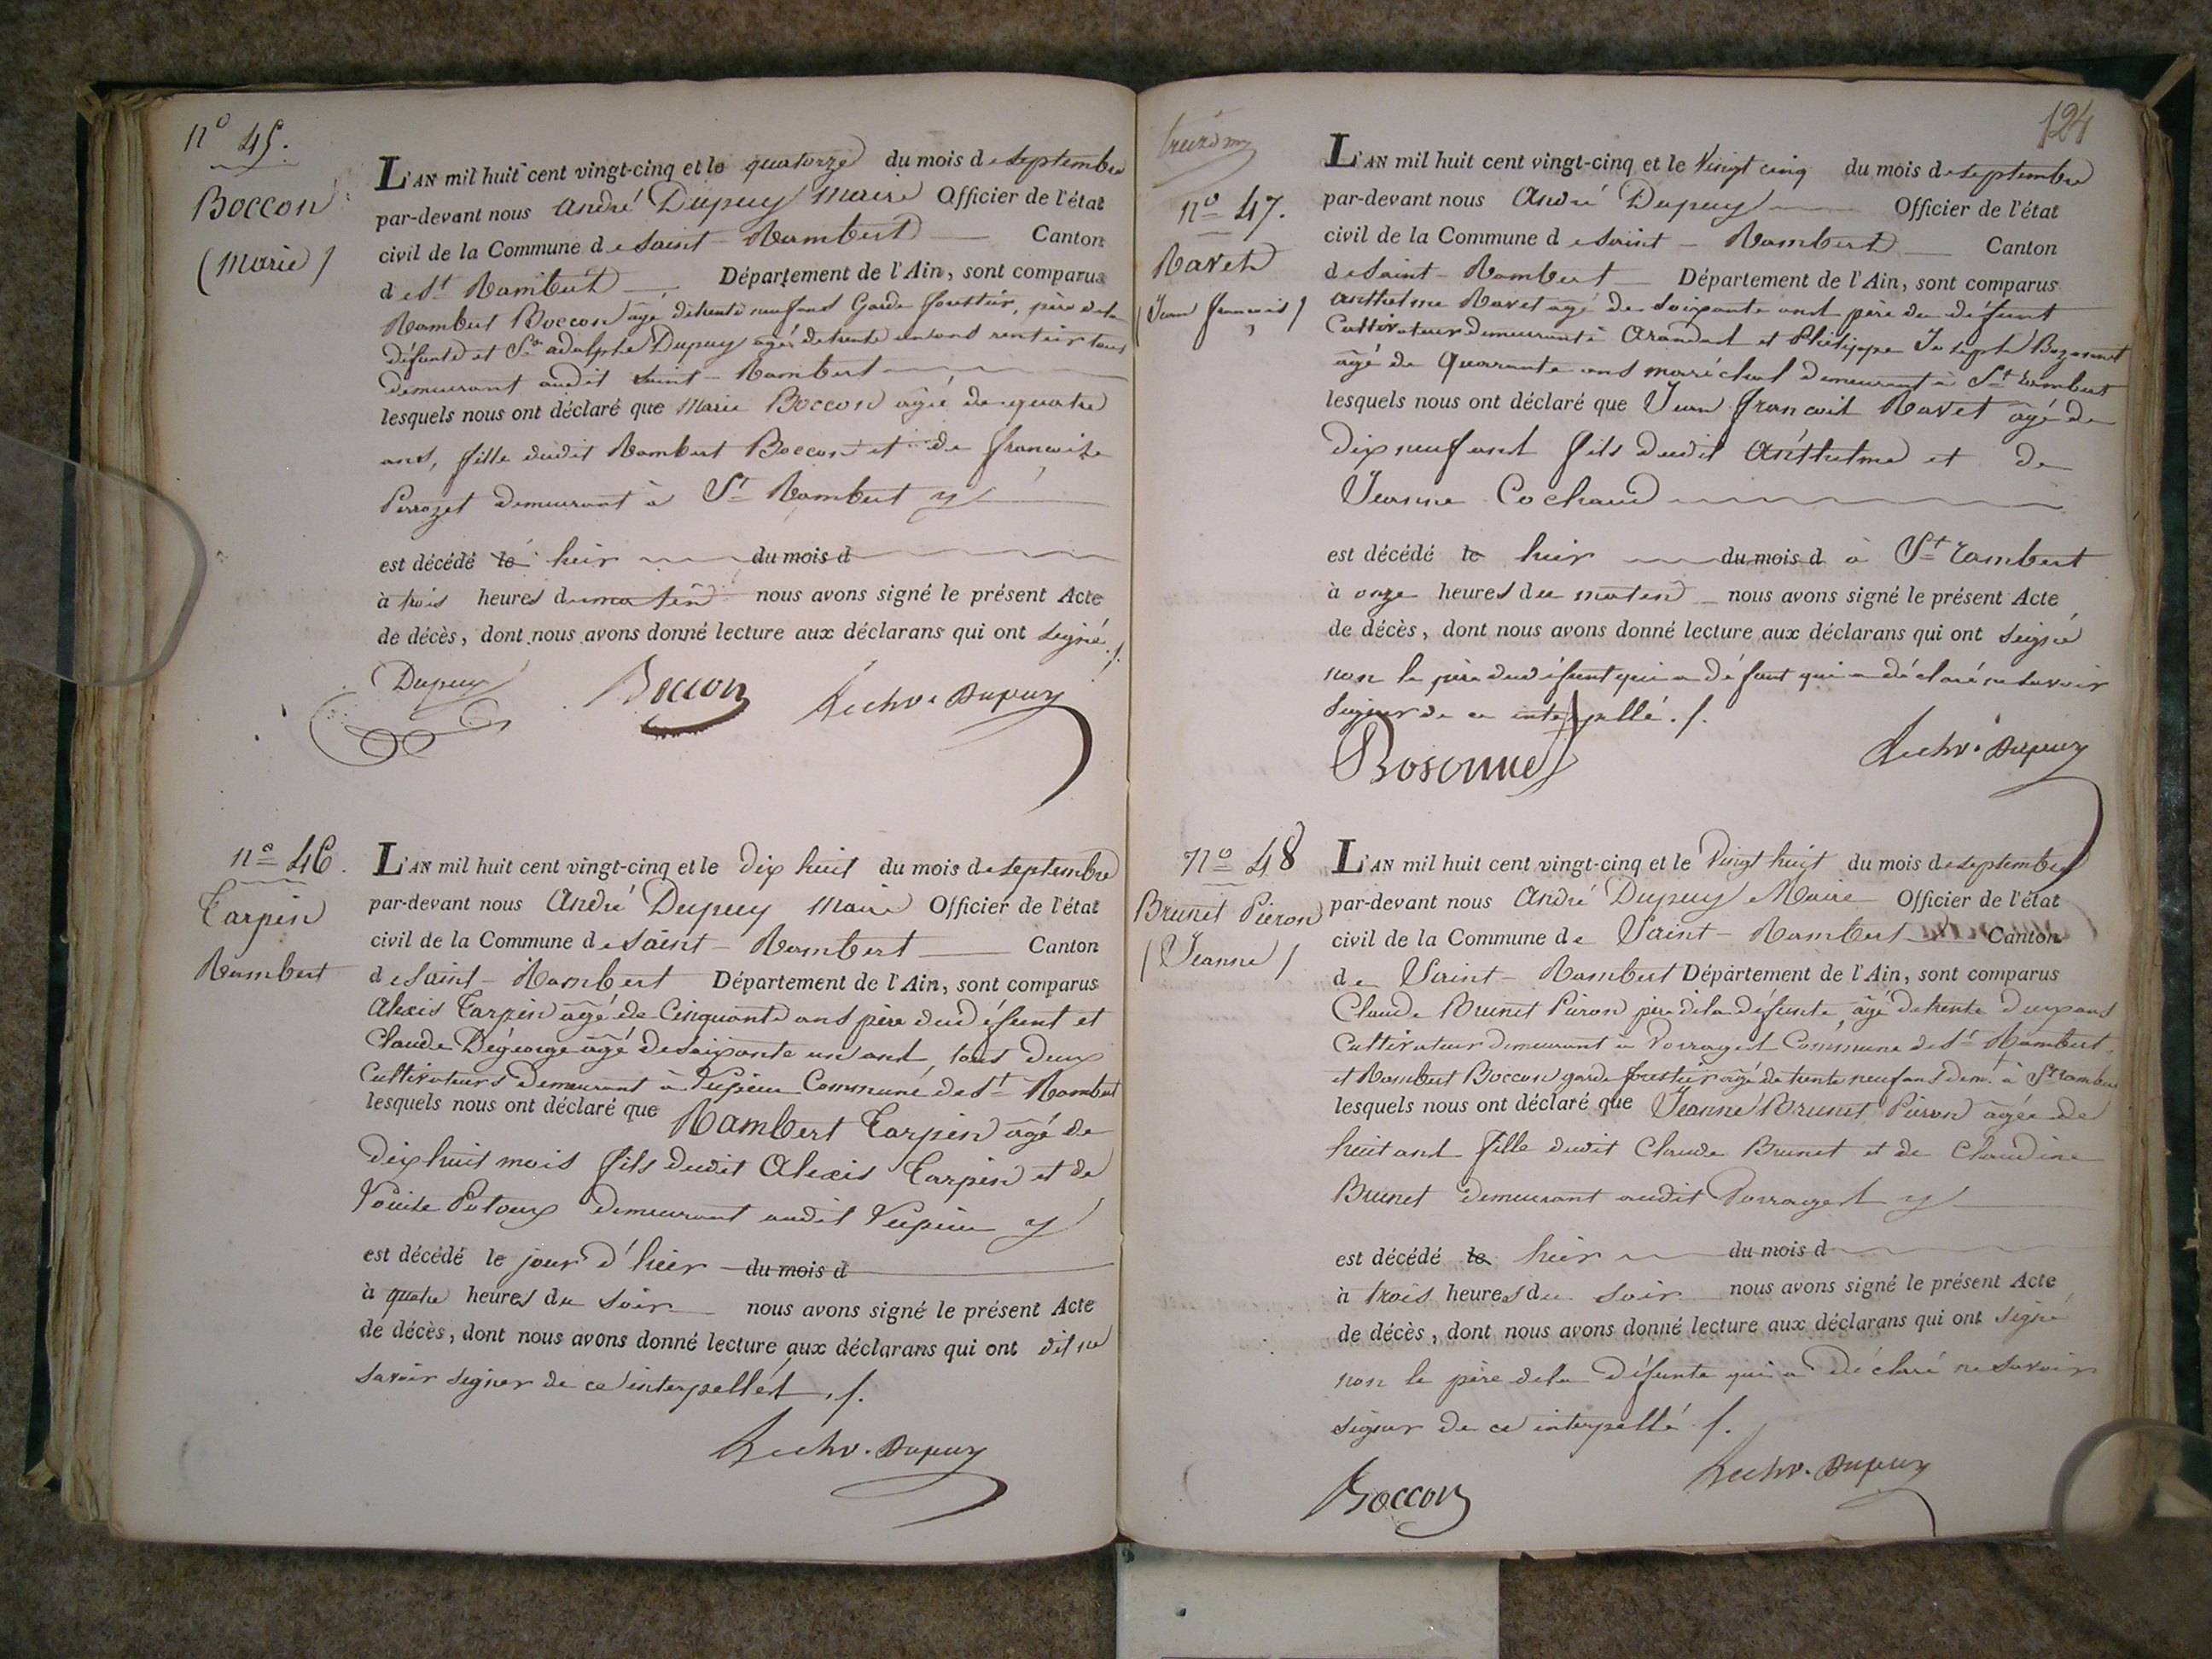 n° 45.
Boccon
(Marie)
L'AN mil huit cent vingt-cinq et le quatorze du mois de septembre
par-devant nous André Dupuy Maire Officier de l'état
civil de la Commune de Saint-Rambert Canton
de St Rambert Département de l'Ain, sont comparus
Rambert Boccon âgé de trente neuf ans Garde forestier, père de la
défunte et Sr adolphe Dupuy âgé de trente un ans rentier tous
demeurant audit Saint-Rambert
lesquels nous ont déclaré que Marie Boccon âgée de quatre
ans, fille dudit Rambert Boccon et de françoise
Perrozet demeurant à St Rambert
est décédé le hier du mois d
à trois heures du matin nous avons signé le présent Acte
de décès, dont nous avons donné lecture aux déclarans qui ont signé ./.
Dupuy Boccon Dupuy
n° 46.
Tarpin
Rambert
L'AN mil huit cent vingt-cinq et le dix huit du mois de septembre
par-devant nous André Dupuy Maire Officier de l'état
civil de la Commune de Saint-Rambert Canton
de Saint-Rambert Département de l'Ain, sont comparus
Alexis Tarpin âgé de Cinquante ans père du défunt et
Claude Dégeorge âgé de soixante un ans, tous deux
Cultivateurs demeurant à Vupieu Commune de St Rambert
lesquels nous ont déclaré que Rambert Tarpin âgé de
dix huit mois fils dudit Alexis Tarpin et de
Louise Putoux demeurant audit Vupieu
est décédé le jour d'hier du mois d
à quatre heures du soir nous avons signé le présent Acte
de décès, dont nous avons donné lecture aux déclarans qui ont dit ne
savoir signer de ce interpellés ./.
Dupuy
124
n° 47.
Ravet
(Jean françois)
L'AN mil huit cent vingt-cinq et le Vingt cinq du mois de septembre
par-devant nous André Dupuy Officier de l'état
civil de la Commune de Saint-Rambert Canton
de Saint-Rambert Département de l'Ain, sont comparus
Anthelme Ravet âgé de soixante ans père du défunt
Cultivateur demeurant à Arandas et Philippe Joseph Bozonnet
âgé de Quarante ans maréchal demeurant à St rambert
lesquels nous ont déclaré que Jean françois Ravet âgé de
dix neuf ans fils dudit Anthelme et de
Jeanne Cochaud
est décédé le hier du mois d à St rambert
à onze heures du matin nous avons signé le présent Acte
de décès, dont nous avons donné lecture aux déclarans qui ont signé
non le père du défunt qui a défaut qui a déclaré ne savoir
signer de ce interpellé ./.
Bosonnet Dupuy
n° 48
Brunet Pieron
(Jeanne)
L'AN mil huit cent vingt-cinq et le Vingt huit du mois de septembre
par-devant nous André Dupuy Maire Officier de l'état
civil de la Commune de Saint-Rambert Canton
de Saint-Rambert Département de l'Ain, sont comparus
Claude Brunet Pieron père de la défunte, âgé de trente deux ans
Cultivateur demeurant à Porrages Commune de St Rambert,
et Rambert Boccon garde forestier âgé de trente neuf ans dem. à St rambert
lesquels nous ont déclaré que Jeanne Brunet Pieron âgée de
huit ans fille dudit Claude Brunet et de Claudine
Brunet demeurant audit Porrages
est décédé le hier du mois d
à trois heures du soir nous avons signé le présent Acte
de décès, dont nous avons donné lecture aux déclarans qui ont signé
non le père de la défunte qui a déclaré ne savoir
signer de ce interpellé ./.
Boccon Dupuy